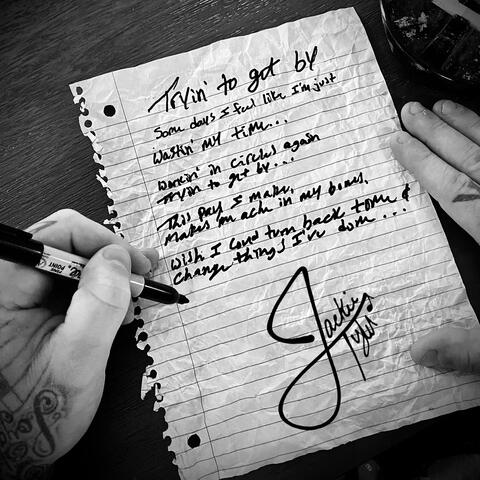 Tryin' to get by
Some days I feel like I'm just
Wastin' my time...
Workin' in circles again
Tryin to get by...
This pay I make,
Makes an ache in my bones,
Wish I could turn back time &
Change things I've done...
Jackie
Tyler
POINT